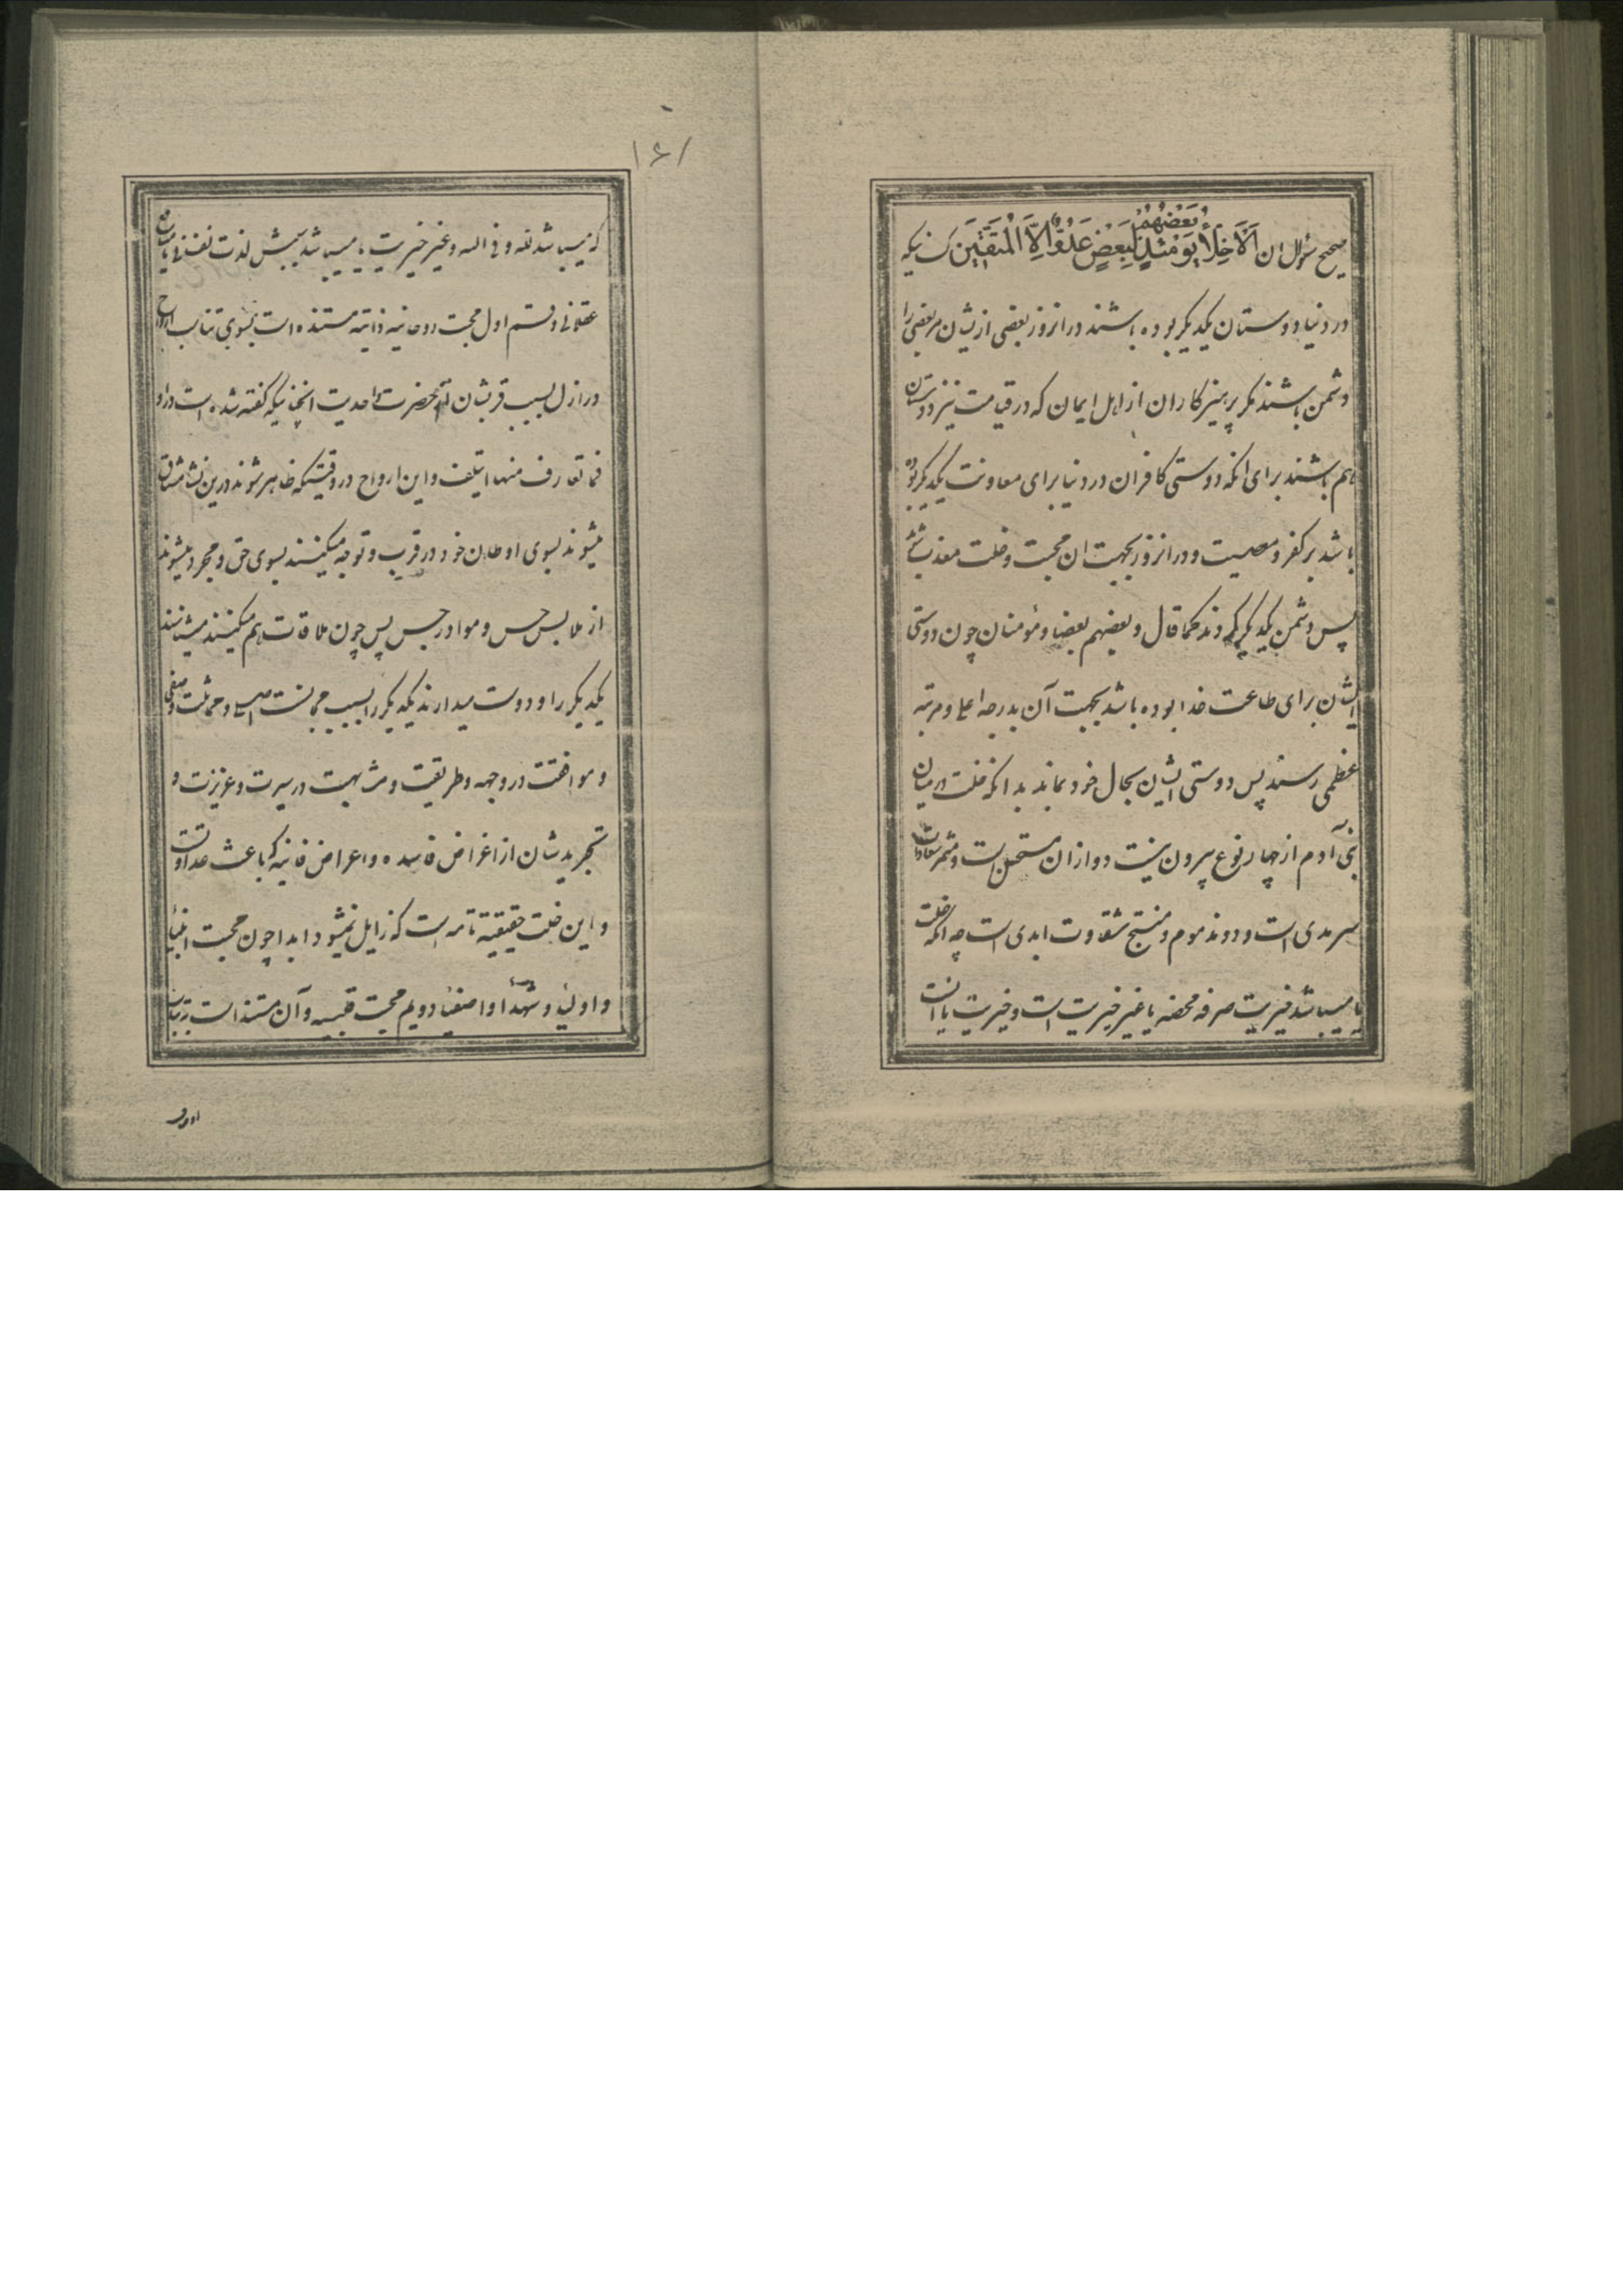 صحیح سؤال ان اَلْاَخِلّاءُ یَوْمَئِذٍ بَعْضُهُمْ لِبَعْضٍ عَدُوٌّ اِلَّا الْمُتَّقینَ کسانیکه
در دنیا دوستان یکدیگر بوده باشند در انروز بعضی ازیشان مر بعضی را
دشمن باشند مکر پرهیزکاران از اهل ایمان که در قیامت نیز دوستان
هم باشند برای انکه دوستی کافران در دنیا برای معاونت یکدیکر بوده
باشد بر کفر و معصیت و در انروز بجهت ان محبت و خلت معذب باشند
پس دشمن یکدیگر کردند کما قال و بعضهم بعضا و مؤمنان چون دوستی
ایشان برای طاعت خدا بوده باشد بجهت آن بدرجه اعلی و مرتبه
عظمی رسند پس دوستی ایشان بحال خود بماند بدانکه خلت در میان
بنی آدم از چهار نوع بیرون نیست دو ازان مستحسن است و مثمر سعادات
سرمدی است و دو مذموم و منتج شقاوت ابدی است چه انکه خلت
یا میباشد خیریت صرفه محضه یا غیر خیریت است و خیریت یا انست
۱۶۱
که میباشد لله و فی الله و غیر خیریت یا میباشد سببش لذت نفسانی یا نفع
عقلانی و قسم اول محبت روحانیه ذاتیه مستنده است بسوی تناسب ارواح
در ازل بسبب قربشان از حضرت احدیت انچنانیکه کفته شده است در او
فما تعارف منها ایتلف و این ارواح در وقتیکه ظاهر شوند درین نشأ مشتاق
میشوند بسوی اوطان خود در قرب و توجه میکنند بسوی حق و مجرد میشوند
از ملابس حس و مواد رجس پس چون ملاقات هم میکنند میشناسند
یکدیکر را و دوست میدارند یکدیکر را بسبب مجانست اصلی و مماثلت وصفی
و موافقت در وجهه و طریقت و مشابهت در سیرت و غریزت و
تجرید شان از اغراض فاسده و اعراض فانیه که باعث عداوتست
و این خلت حقیقیه تامه است که زایل نمیشود ابدا چون محبت انبیا
و اولیا و شهدا و اصفیا دویم محبت قلبیه و آن مستند است بتناسب